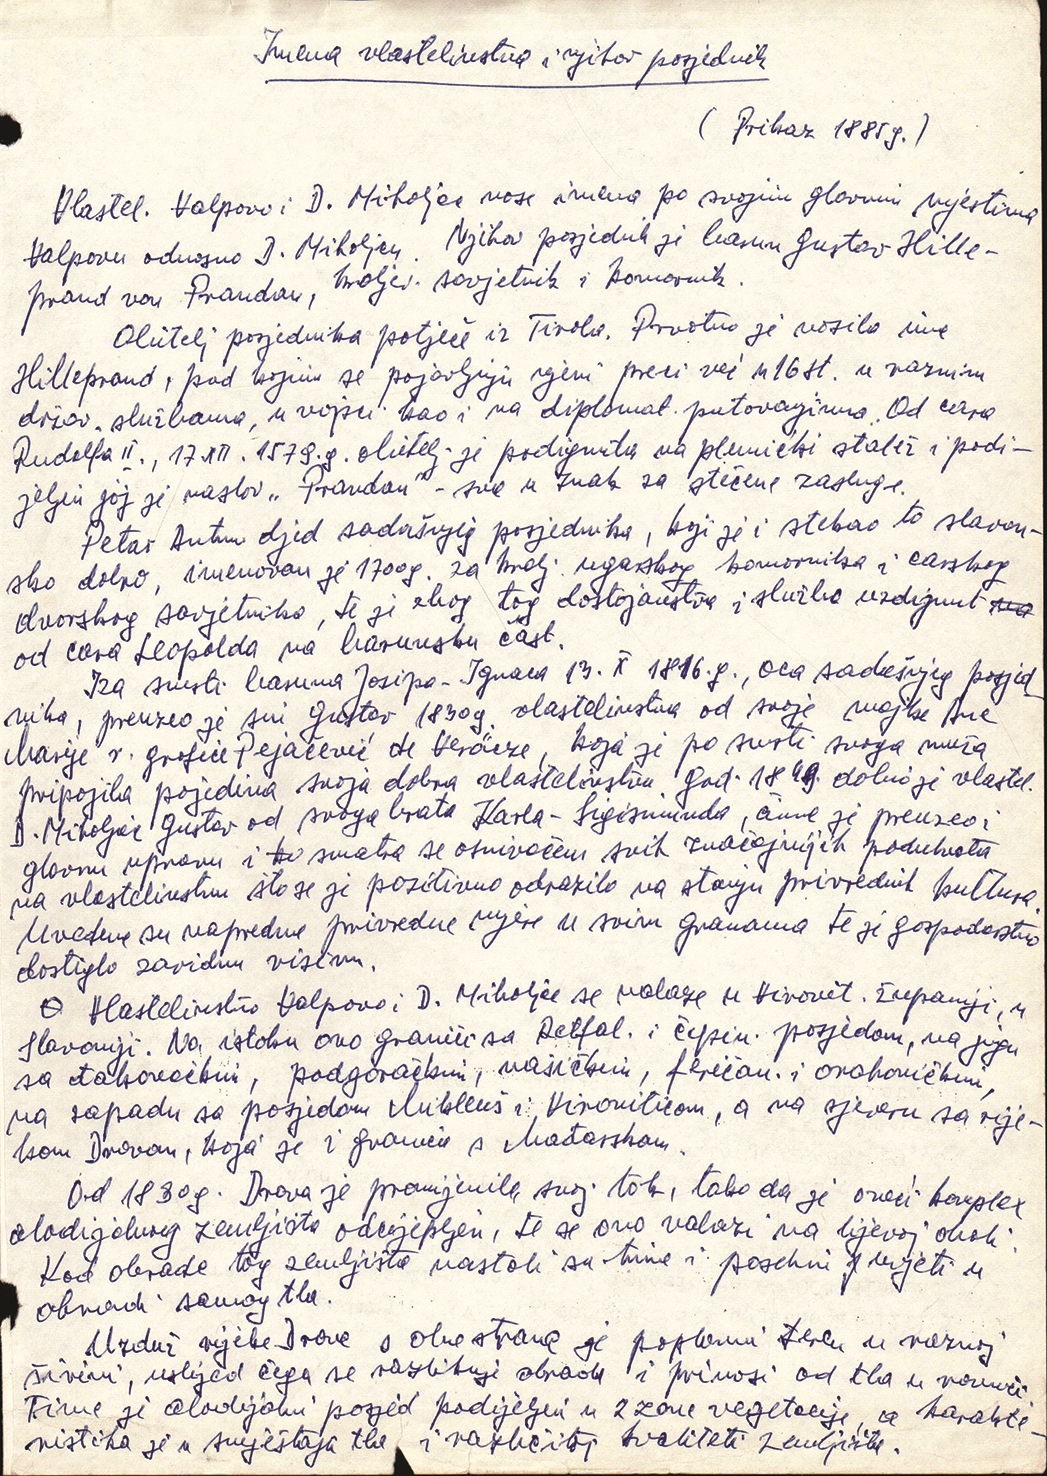 Imena vlastelinstva i njihov posjednik
( Prikaz 1885g. )
Vlastel. Valpovo i D. Miholjac nose imena po svojim glavnim mjestima
Valpovu odnosno D. Miholjcu. Njihov posjednik je barun Gustav Hille-
prand von Prandau, kraljev. savjetnik i komornik.
Obitelj posjednika potječe iz Tirola. Prvotno je nosila ime
Hilleprand, pod kojim se pojavljuju njeni preci već u 16 st. u raznim
držav. službama, u vojsci kao i na diplomat. putovanjima. Od cara
Rudolfa II., 17.XII. 1579.g. obitelj je podignuta na plemićki stalež i podi-
jeljen joj je naslov „Prandau" - sve u znak za stečene zasluge.
Petar Antun djed sadašnjeg posjednika, koji je i stekao to slavon-
sko dobro, imenovan je 1700g. za kralj. ugarskog komornika i carskog
dvorskog savjetnika, te je zbog tog dostojanstva i službe uzdignut na
od cara Leopolda na barunsku čast.
Iza smrti baruna Josipa-Ignaca 13. X 1816.g., oca sadašnjeg posjed-
nika, preuzeo je sin Gustav 1830g. vlastelinstva od svoje majke Ane
Marije r. grofice Pejačević de Verőcze, koja je po smrti svoga muža
pripojila pojedina svoja dobra vlastelinstvu. god. 18 dobio je vlastel.
D. Miholjac Gustav od svoga brata Karla-Sigismunda, čime je preuzeo i
glavnu upravu i smatra se osnivačem svih značajnijih poduhvata
na vlastelinstvu što se je pozitivno odrazilo na stanju privrednih kultura.
Uvedene su napredne privredne mjere u svim granama te je gospodarstvo
dostiglo zavidnu visinu.
Vlastelinstvo Valpovo i D. Miholjac se nalaze u Virovit. županiji, u
Slavoniji. Na istoku ovo graniči sa Retfal. i čepin. posjedom, na jugu
sa đakovačkim, podgoračkim, našičkim, feričan. i orahovičkim,
na zapadu sa posjedom Mikleuš i Viroviticom, a na sjeveru sa rije-
kom Dravom, koja je i granica s Mađarskom.
Od 1830g. Drava je promijenila svoj tok, tako da je oveći kompleks
alodijalnog zemljišta odcijepljen, te se ovo nalazi na lijevoj obali.
Kod obrade tog zemljišta nastali su time i posebni uvjeti u
obradi samog tla.
Uzduž rijeke Drave s obe strane je poplavni teren u raznoj
širini, uslijed čega se razlikuje obrada i prinosi od tla u ravnici
Time je alodijalni posjed podijeljen u 2 zone vegetacije, a karakte-
ristika je u smještaju tla i različitoj kvaliteti zemljišta.